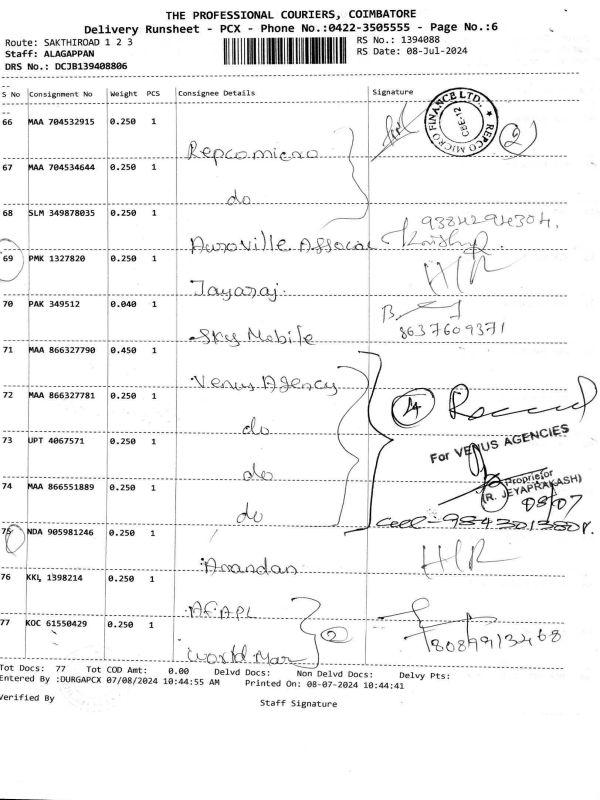 THE PROFESSIONAL COURIERS, COIMBATORE
Delivery Runsheet - PCX - Phone No.:0422-3505555 - Page No.:6
Route: SAKTHIROAD 1 2 3 RS No.: 1394088
Staff: ALAGAPPAN RS Date: 08-Jul-2024
DRS No.: DCJB139408806
S No Consignment No Weight PCS Consignee Details Signature
66 MAA 704532915 0.250 1
REPCO MICRO FINANCE LTD. CBE-12 2
Repcomicro
67 MAA 704534644 0.250 1
do
68 SLM 349878035 0.250 1
9384294304.
Auroville Assocai
69 PMK 1327820 0.250 1
Jayaraj.
70 PAK 349512 0.040 1
8637609371
Sky Mobile
71 MAA 866327790 0.450 1
Venus Agency
72 MAA 866327781 0.250 1
4
do
73 UPT 4067571 0.250 1
For VENUS AGENCIES
do
74 MAA 866551889 0.250 1
Proprietor
(R. JEYAPRAKASH)
08/07
do
75 NDA 905981246 0.250 1
Anandan
76 KKL 1398214 0.250 1
AFAPL
77 KOC 61550429 0.250 1
2
8089913468
World Mar
Tot Docs: 77 Tot COD Amt: 0.00 Delvd Docs: Non Delvd Docs: Delvy Pts:
Entered By :DURGAPCX 07/08/2024 10:44:55 AM Printed On: 08-07-2024 10:44:41
Verified By Staff Signature